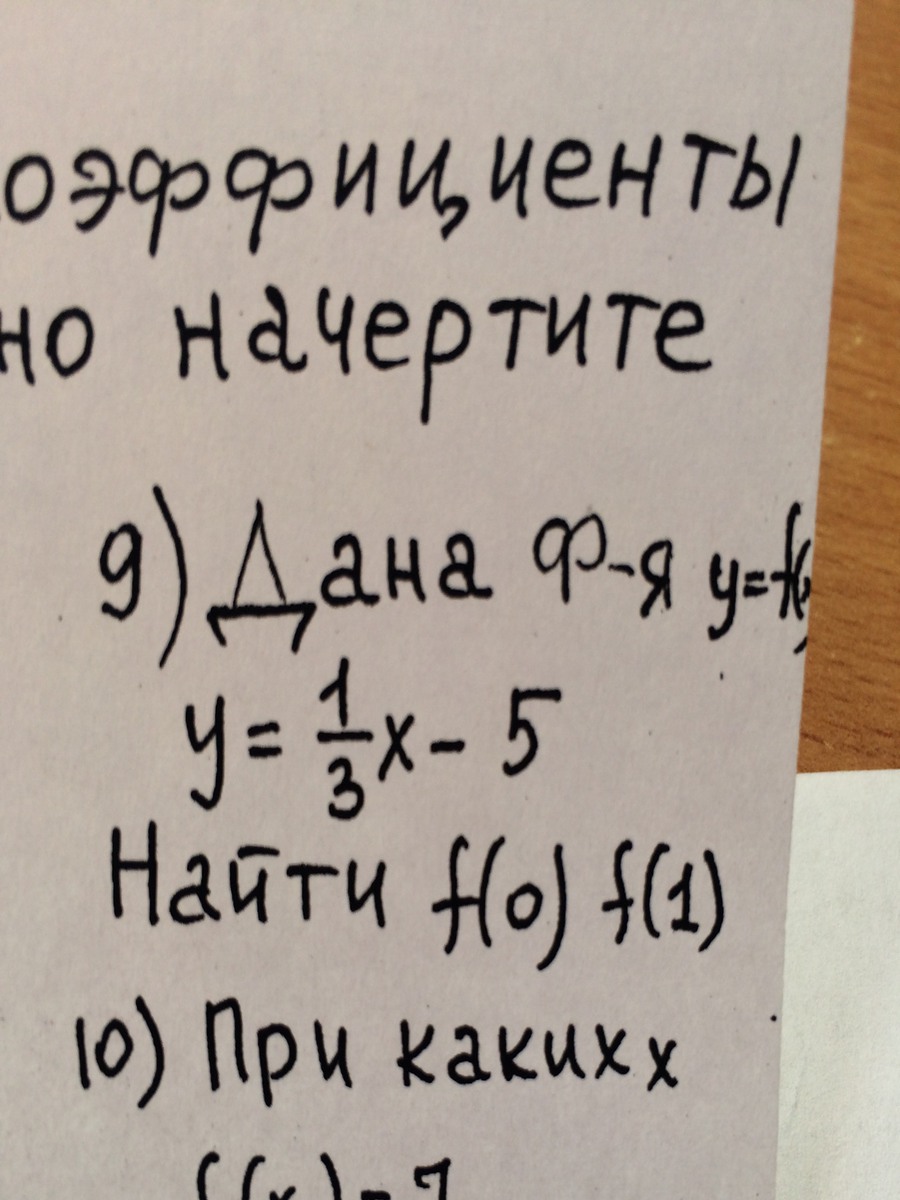 оэффициенты
но начертите
9) Дана ф-я y=f(
y = 1/3 x - 5
Найти f(0) f(1)
10) При каких x
f(x) = 7